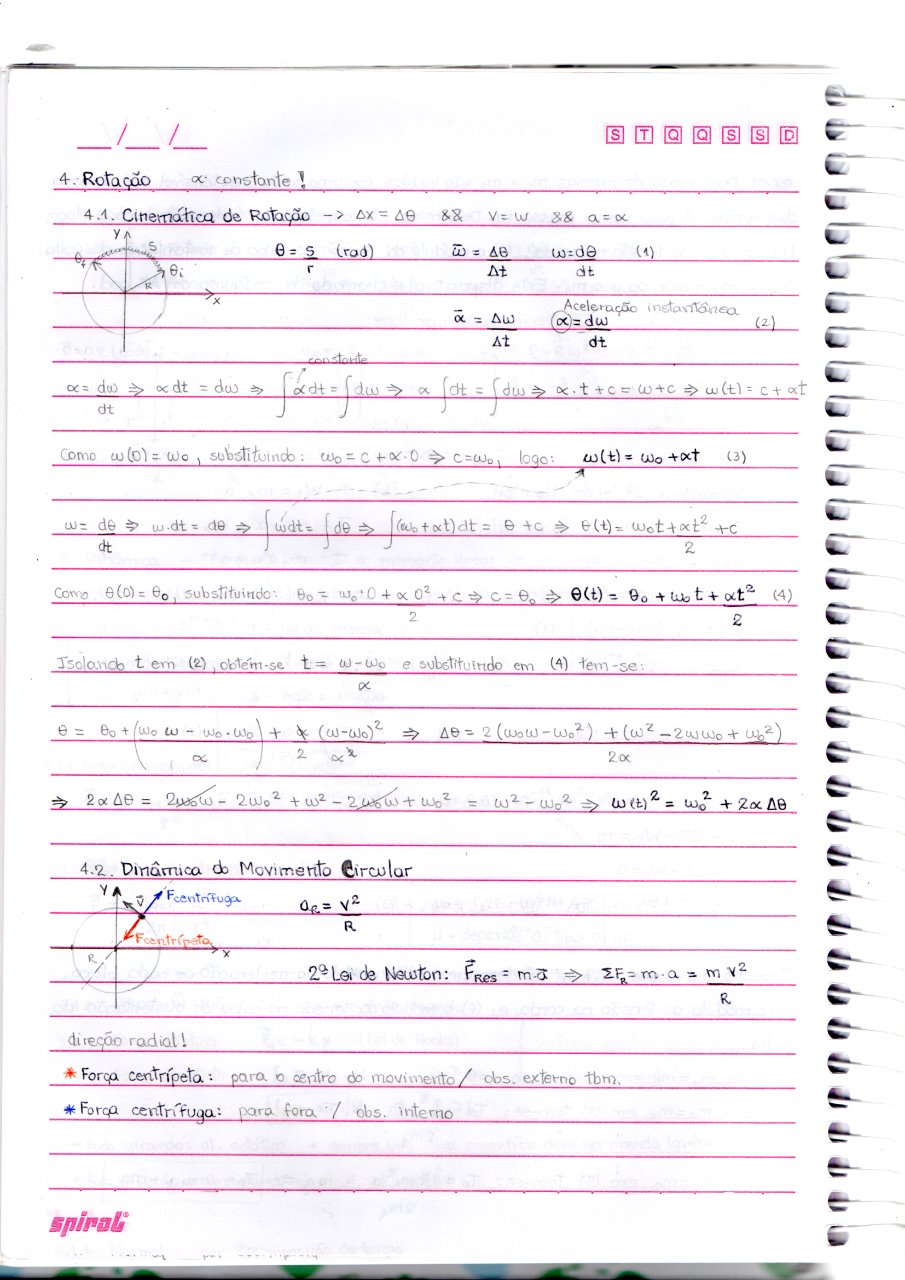 __/__/__ S T Q Q S S D
4. Rotação α constante!
4.1. Cinemática de Rotação -> Δx = Δθ && v = w && a = α
y S θf θi R x
θ = s/r (rad) ω̄ = Δθ/Δt ω = dθ/dt (1)
Aceleração instantânea
ᾱ = Δω/Δt α = dω/dt (2)
constante
α = dω/dt ⇒ α dt = dω ⇒ ∫α dt = ∫dω ⇒ α ∫dt = ∫dω ⇒ α.t + c = ω + c ⇒ ω(t) = c + αt
Como ω(0) = ω₀, substituindo: ω₀ = c + α·0 ⇒ c = ω₀, logo: ω(t) = ω₀ + αt (3)
ω = dθ/dt ⇒ ω.dt = dθ ⇒ ∫ωdt = ∫dθ ⇒ ∫(ω₀ + αt) dt = θ + c ⇒ θ(t) = ω₀t + αt²/2 + c
Como θ(0) = θ₀, substituindo: θ₀ = ω₀·0 + α 0²/2 + c ⇒ c = θ₀ ⇒ θ(t) = θ₀ + ω₀t + αt²/2 (4)
Isolando t em (2), obtém-se t = ω - ω₀/α e substituindo em (4) tem-se:
θ = θ₀ + (ω₀ ω - ω₀.ω₀/α) + α/2 (ω-ω₀)²/α² ⇒ Δθ = 2(ω₀ω - ω₀²) + (ω² - 2ωω₀ + ω₀²)/2α
⇒ 2αΔθ = 2ω₀ω - 2ω₀² + ω² - 2ω₀ω + ω₀² = ω² - ω₀² ⇒ ω(t)² = ω₀² + 2αΔθ
4.2. Dinâmica do Movimento Circular
y v⃗ Fcentrífuga
Fcentrípeta
R x
a_R = v²/R
2ª Lei de Newton: F⃗_RES = m·a⃗ ⇒ ΣF_R = m·a = m v²/R
direção radial!
* Força centrípeta: para o centro do movimento / obs. externo tbm.
* Força centrífuga: para fora / obs. interno
spiral®